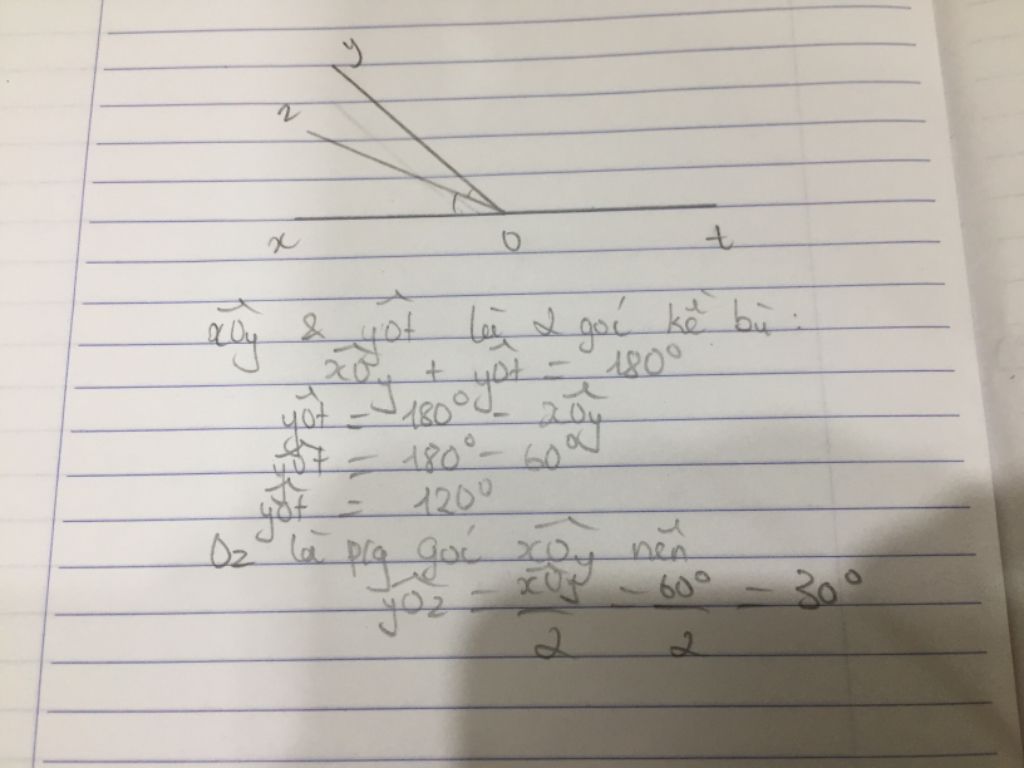 y
z
x O t
xOy & yOt là 2 góc kề bù :
xOy + yOt = 180°
yOt = 180° - xOy
yOt = 180° - 60°
yOt = 120°
Oz là p/g góc xOy nên
yOz = xOy/2 = 60°/2 = 30°